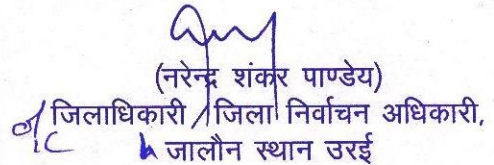 (नरेन्द्र शंकर पाण्डेय)
जिलाधिकारी / जिला निर्वाचन अधिकारी,
जालौन स्थान उरई